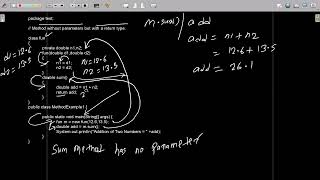 package test;
// Method without parameters but with a return type.
class fun
{
private double n1,n2;
fun(double d1,double d2)
{
n1 = d1;
n2 = d2;
}
double sum()
{
double add = n1 + n2;
return add;
}
}
public class MethodExample1 {
public static void main(String[] args) {
fun m = new fun(12.6,13.5);
double add = m.sum();
System.out.println("Addition of Two Numbers = " +add);
d1=12.6
d2=13.5
n1=12.6
n2=13.5
m.sum()
add
add = n1+n2
= 12.6+13.5
add = 26.1
Sum method has no parameter